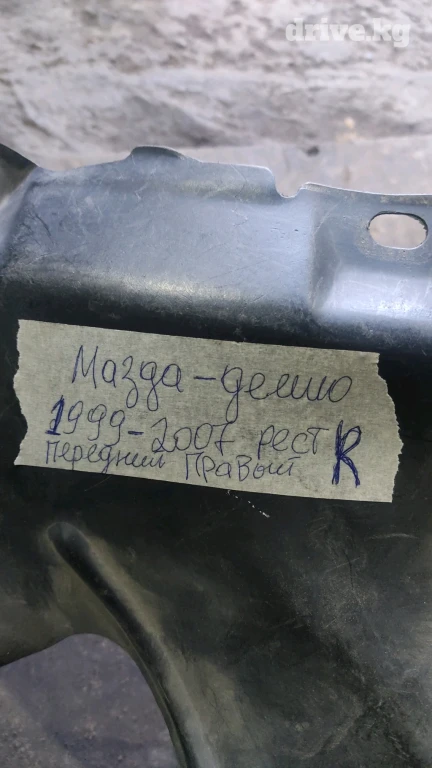 drive.kg
Мазда-демио
1999-2007 рест R
передний правый